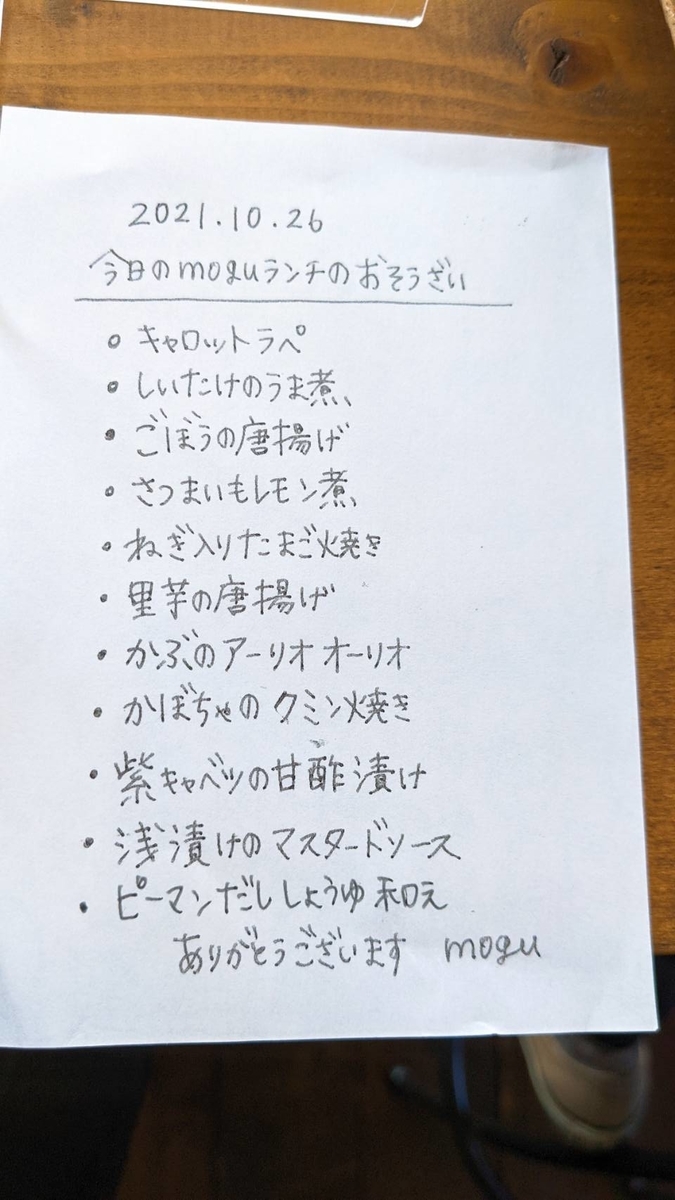 2021.10.26
今日のmoguランチのおそうざい
・キャロットラペ
・しいたけのうま煮、
・ごぼうの唐揚げ
・さつまいもレモン煮、
・ねぎ入りたまご火焼き
・里芋の唐揚げ
・かぶのアーリオオーリオ
・かぼちゃのクミン焼き
・紫キャベツの甘酢漬け
・浅漬けのマスタードソース
・ピーマンだししょうゆ和え
ありがとうございます mogu